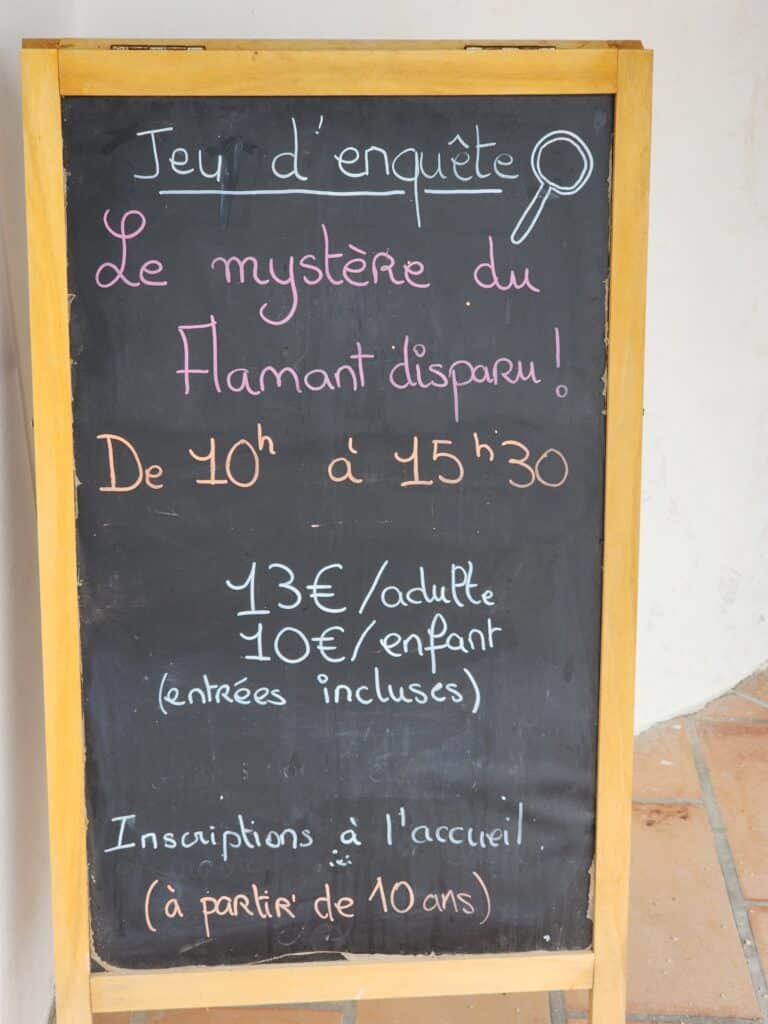 Jeu d'enquête
Le mystère du
Flamant disparu !
De 10h à 15h30
13€/adulte
10€/enfant
(entrées incluses)
Inscriptions à l'accueil.
(à partir de 10 ans)